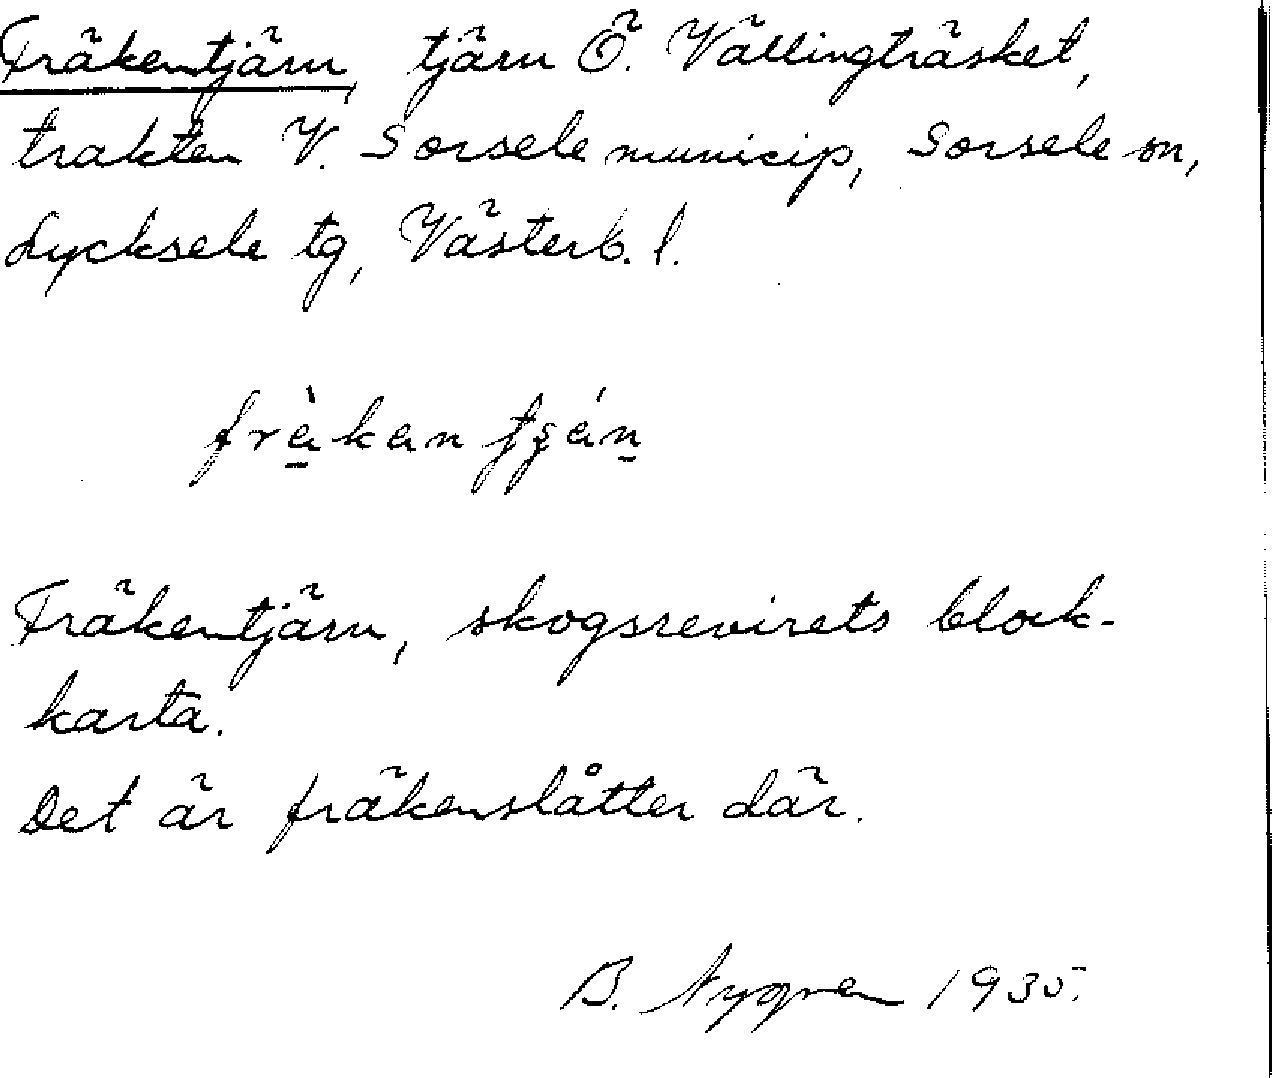 Fräkentjärn, tjärn Ö. Vällingträsket,
trakten V. Sorsele municip, Sorsele sn,
Lycksele tg, Västerb. l.
Fräkentjärn, skogsrevirets block-
karta.
Det är fräkenslåtter där.
B. Nygren 1935.